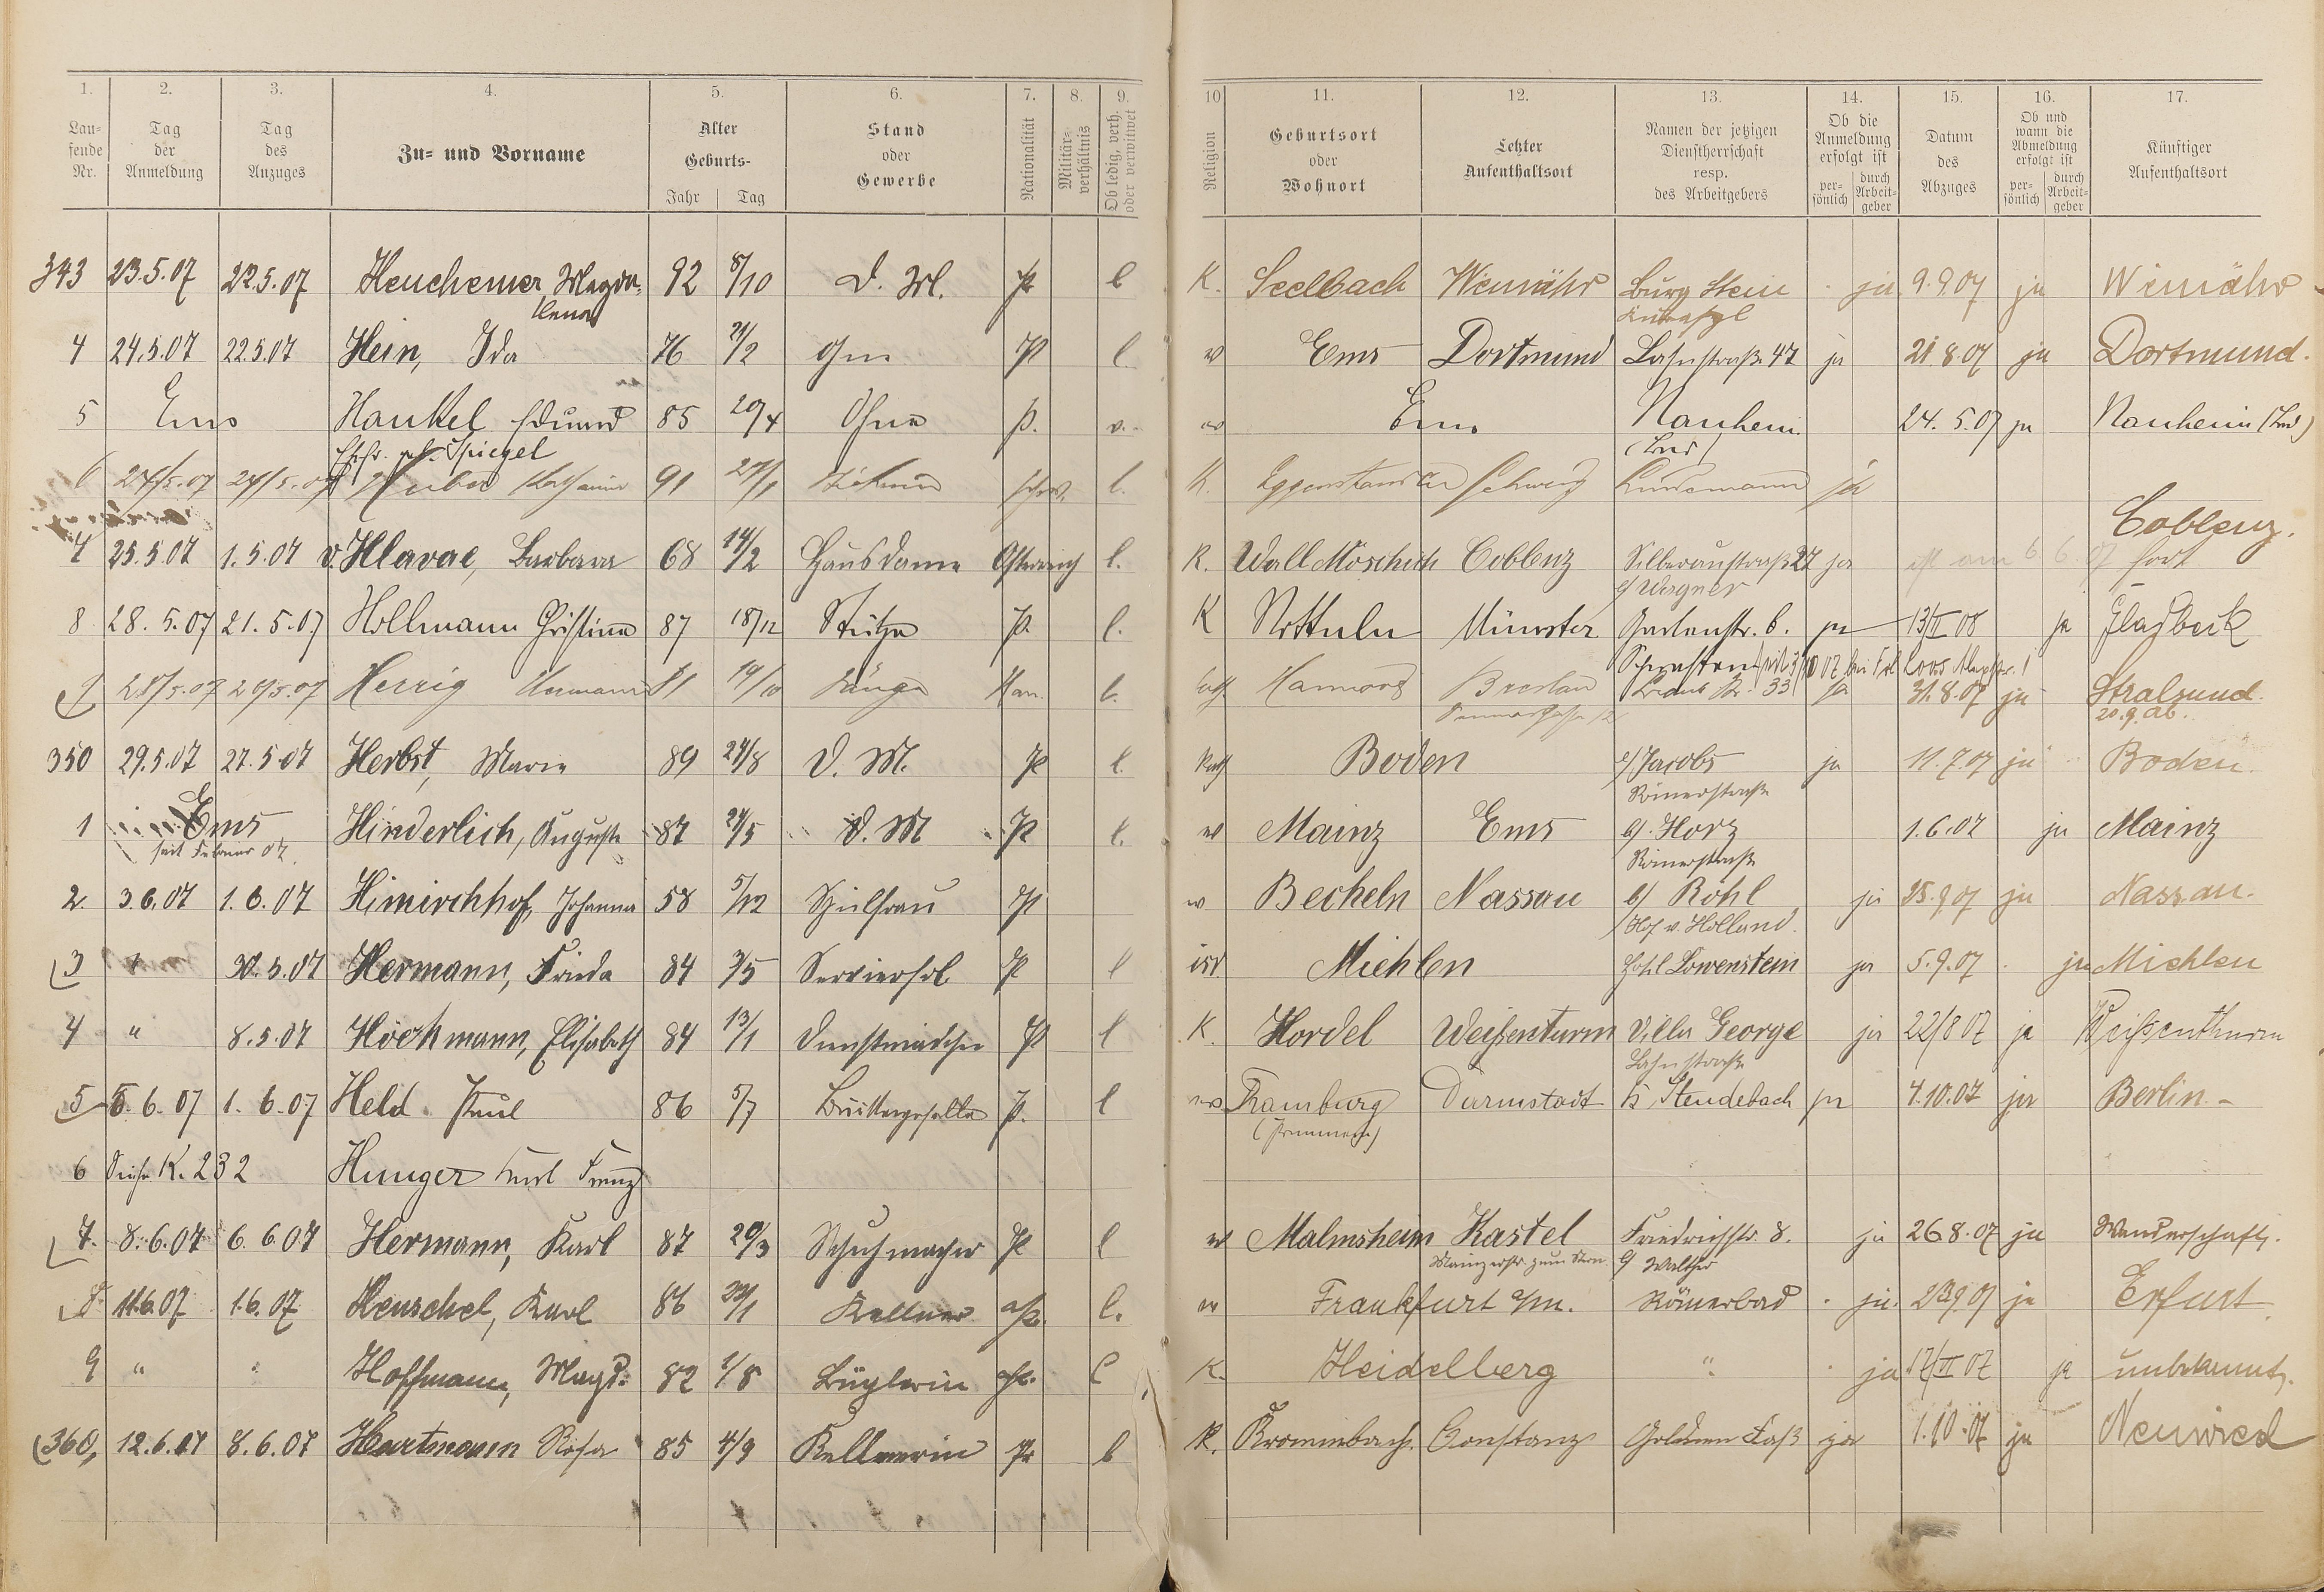 1. 2. 3. 4. 5. 6. 7. 8. 9. 10 11. 12. 13. 14. 15. 16. 17.
Lau-fende Nr. Tag der Anmeldung Tag des Anzuges Zu- und Vorname Alter Geburts- Jahr Tag Stand oder Gewerbe Nationalität Militär-verhältnis Ob ledig, verh. oder verwitwet Religion Geburtsort oder Wohnort Letzter Aufenthaltsort Namen der jetzigen Dienstherrschaft resp. des Arbeitgebers Ob die Anmeldung erfolgt ist per-sönlich durch Arbeit-geber Datum des Abzuges Ob und wann die Abmeldung erfolgt ist per-sönlich durch Arbeit-geber Künftiger Aufenthaltsort
343 23.5.07 22.5.07 Heuchemer Magda- 92 8/10 D. M. P l K. Seelbach Weinähr Burg Stein ja 9.9.07 ja Winähr
lena
4 24.5.07 22.5.07 Hein, Ida 76 21/2 Ohne P l. w Ems Dortmund Lahnstraße 47 ja 21.8.07 ja Dortmund.
5 Ems Hankel Eduard 85 20/4 Ohne P. v. w Ems Nauheim 24. 5.07 ja Nauheim (Bad)
Ehefr. geb. Spiegel (Bad)
6 24/5.07 24/5.07 Huber Katharina 91 27/1 schw. l. K. Schweiz ja
Coblenz.
7 25.5.07 1.5.07 v. Hlavac, Barbara 68 14/2 Hausdame Österreich l. K. Wall. Coblenz Silberaustraße 27 ja ist am 6.6.07 fort
b/ Wagner
8 28. 5.07 21. 5.07 Hollmann Christina 87 18/12 Stütze P. l. K Nottuln Münster Gartenstr. 6. ja 13/II 08 ja Gladbeck
9 28/5.07 Herrig Hermann 81 19/10 Sänger Han. l. Hannover Breslau 33 ja 31.8.07 ja Stralsund.
20.9. ab.
350 29.5.07 27.5.07 Herbst, Marie 89 24/8 D. M. P l. Kath Boden b/ Jacobs ja 11.7.07 ja Boden.
Römerstraße
1 Ems Hinderlich, Auguste 87 24/5 D. M P l. w Mainz Ems b/. Horz 1.6.07 ja Mainz
seit Februar 07. Römerstraße
2. 3.6.07 1.6.07 Himirchhof, Johanna 58 5/12 Spülfrau P w Becheln Nassau b/ Rohl ja 25.9.07 ja Nassau.
Hof v. Holland.
3 " 30.5.07 Hermann, Frieda 84 3/5 Servierfrl. P l isr. Miehlen Hotel Löwenstein ja 5.9.07. ja Miehlen
4 " 8.5.07 Höckmann, Elisabeth 84 13/1 Dienstmädchen P l K. Hordel Weißenturm Villa George ja 22/8 07 ja Weißenthurm
Lahnstraße
5 5.6.07 1.6.07 Held Paul 86 5/7 P. l Dramburg Darmstadt Stendebach ja 4.10.07 ja Berlin.-
(Pommern)
6 Siehe K. 232 Hunger Karl Franz
7. 8.6.07 6.6.07 Hermann, Karl 87 20/3 Schuhmacher P l w Malmsheim Kastel Friedrichstr. 8. ja 26.8.07 ja Wanderschaft.
Mainzerstr. zum Stern. b/ Walther
8 11.6.07 1.6.07 Henschel, Karl 86 23/1 Kellner l. w Frankfurt a/m. Römerbad ja. 07 ja Erfurt
9 " " Hoffmann, Magd. 82 1/8 Büglerin l K. Heidelberg " ja 17/II 07 ja unbekannt.
360, 12.6.07 8.6.07 Hartmann Rosa 85 4/9 Kellnerin Pr l K. Krominbach. Constanz Goldenen Faß ja 1.10.07 ja Neuwied